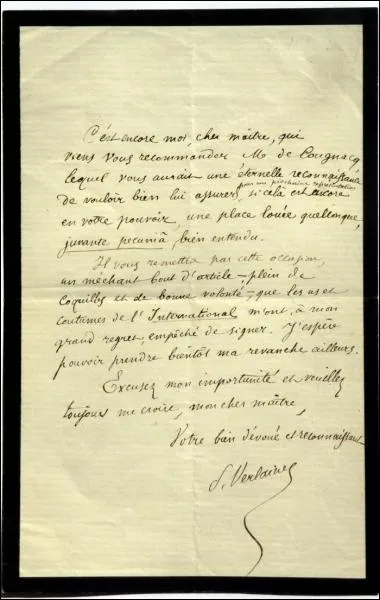 C'est encore moi, cher maître, qui
viens vous recommander Mr de Cougnacq
lequel vous aurait une éternelle reconnaissance
de vouloir bien lui assurer, si celà est encore
pour une prochaine représentation
en votre pouvoir, une place louée quelconque,
juvante pecuniâ, bien entendu.
Il vous remettra par cette occasion,
un méchant bout d'article – plein de
coquilles et de bonne volonté – que les us et
coutumes de l'International m'ont, à mon
grand regret, empêché de signer. J'espère
pouvoir prendre bientôt ma revanche ailleurs.
Excusez mon importunité et veuillez
toujours me croire, mon cher maître,
Votre bien dévoué et reconnaissant
P. Verlaine